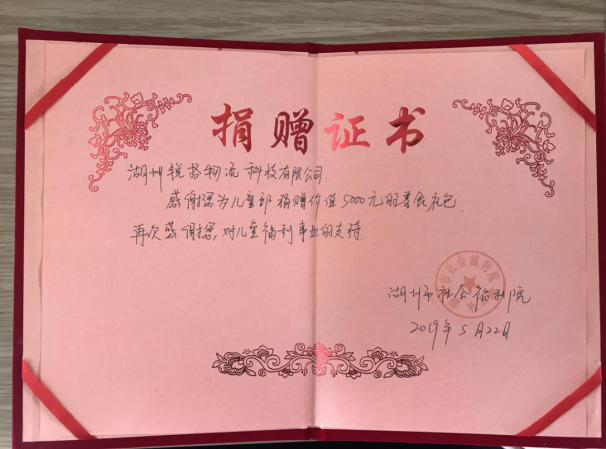 捐赠证书
湖州锐格物流科技有限公司:
感谢您为儿童部捐赠价值5000元的零食礼包.
再次感谢您,对儿童福利事业的支持.
湖州市社会福利院
2019年5月22日